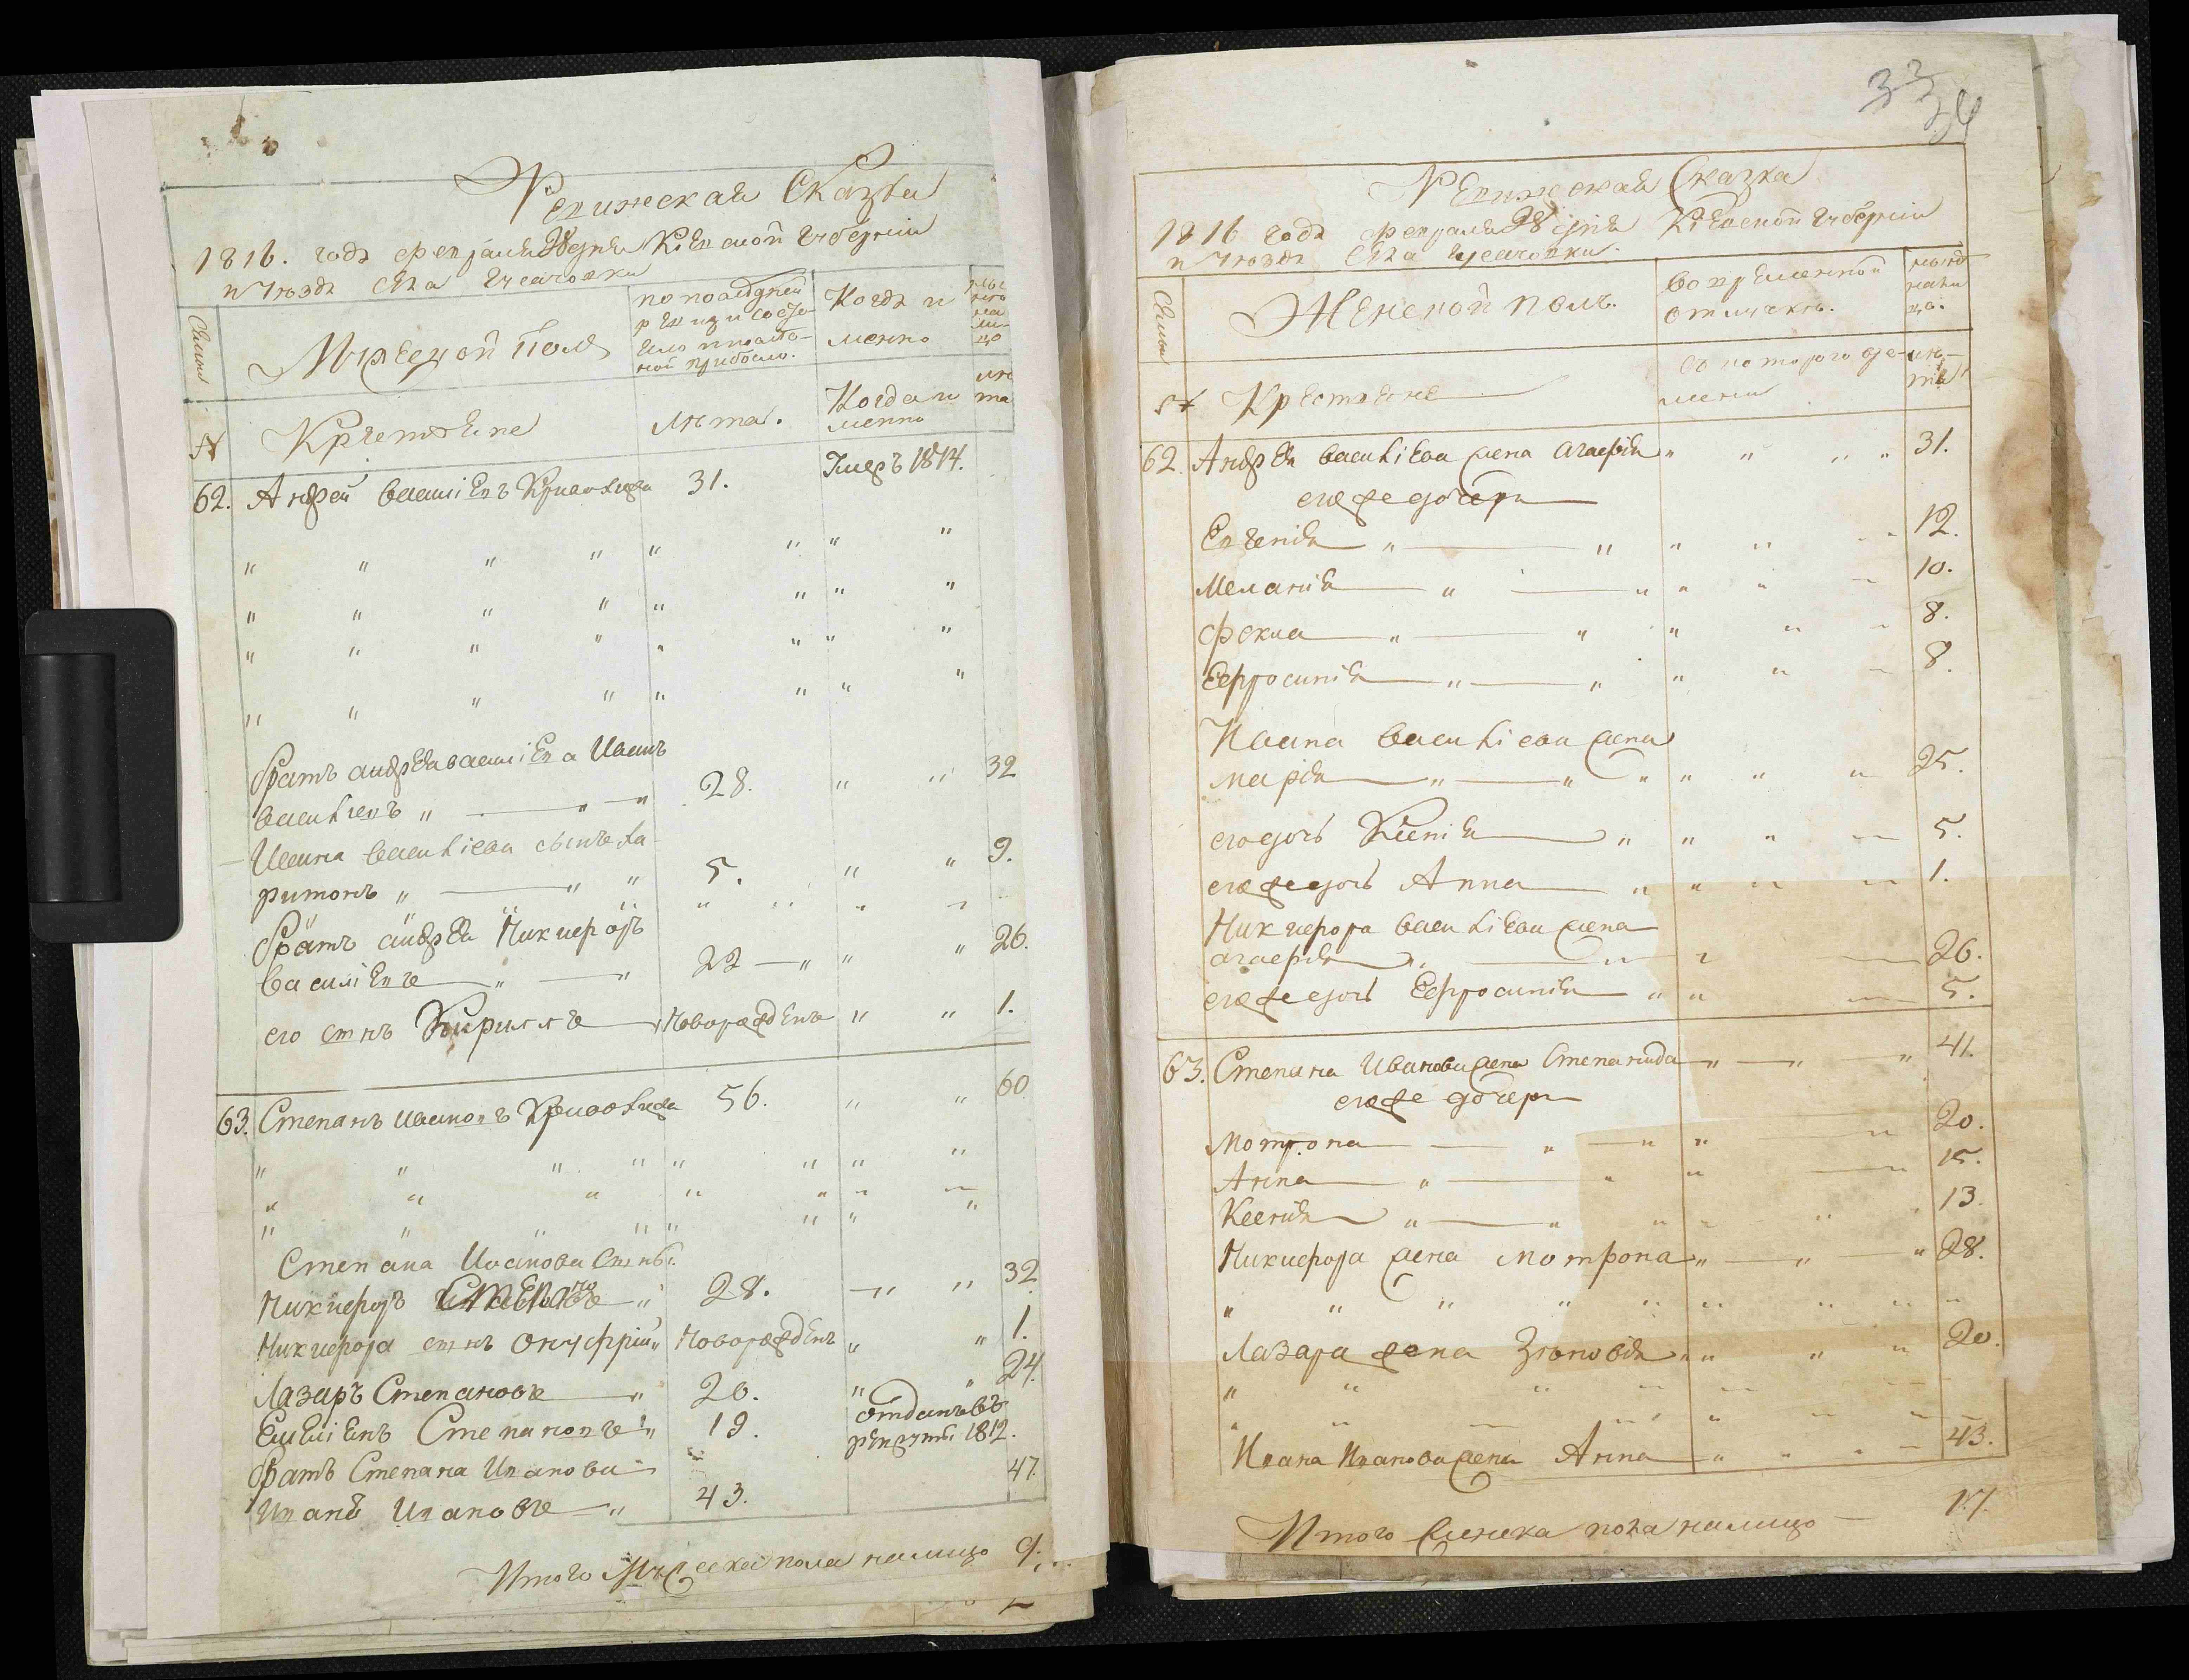 Ревижская Сказка
1816. года февраля 28 дня Кiевской Губернiи
и Уѣзда села
Семьи
Мужеской полъ
по последней ревизiи состояло и после оной прибыло.
Когда и менно
ныне на лицо
№
Крестьяне
лѣта.
Когда и менно
лѣта
62. Андрей Василiевъ 31. Умеръ 1814.
братъ андрея василiева Иванъ
василiевъ „ — „ 28. „ „ 32
Ивана василiева сынъ ха-
ритонъ „ — „ „ 5. „ „ 9.
братъ андрея Никифоръ
василiевъ „ — „ 22 — „ „ „ 26.
его сынъ Кирилъ новорожденъ „ „ 1.
63. Степанъ ивановъ 56. „ „ 60.
Степана Иванова сыны:
Никифоръ „ 28. „ „ 32
Никифора сынъ онуфрiй „ новорожденъ „ „ 1.
Лазаръ Степановъ „ 20. „ „ 24.
Степановъ „ 19. отданъ въ
рекруты 1812.
братъ Степана Иванова
Иванъ Ивановъ — „ 43. 47.
Итого Мужеска пола налицо 9.
33
34
Ревижская Сказка
1816 года февраля 28 дня Кiевской Губернiи
и Уѣзда села
Семьи
Женской полъ.
во временной отлучкѣ.
ныне на лицо.
№ Крестьяне
съ котораго времени
лѣта
62. Андрея василiева жена агафiя „ „ „ „ 31.
его же дочери
Евгенiя „ — „ „ „ 12.
Меланiя — „ — „ „ „ 10.
фекла — „ — „ „ „ 8.
Ефросинiя — „ — „ „ „ 8.
Ивана василiева жена
марiя — „ — „ „ „ „ 25.
его дочь Ксенiя — „ „ „ 5.
его же дочь Анна — „ „ „ 1.
Никифора василiева жена
агафiя „ — „ 26.
его же дочь Ефросинiя „ „ 5.
63. Степана Иванова жена Степанида „ — „ „ 41.
его же дочери
Мотрона — „ — „ „ „ 20.
Анна — „ — „ „ 15.
Ксенiя „ — „ „ „ 13.
Никифора жена мотрона „ — „ „ 28.
Лазара жена Зѣновiя „ „ „ „ 20.
Ивана Иванова жена Анна „ „ „ 43.
Итого Женска пола налицо — 17.